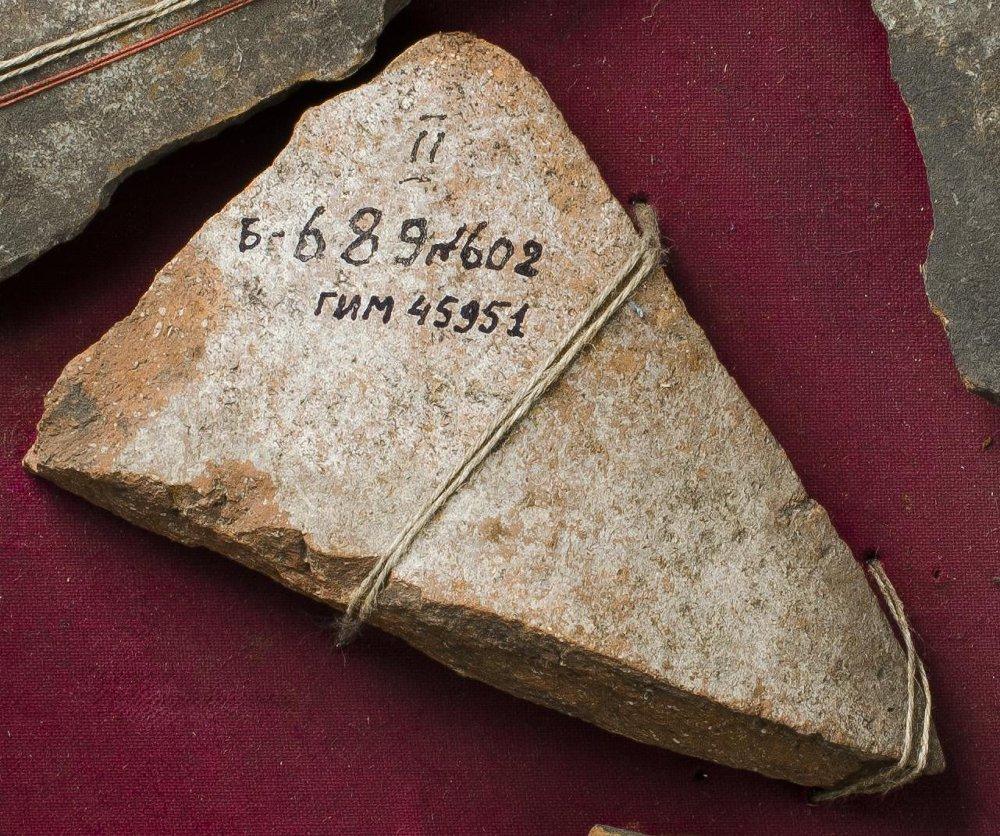 II
Б-689/1602
ГИМ 45951